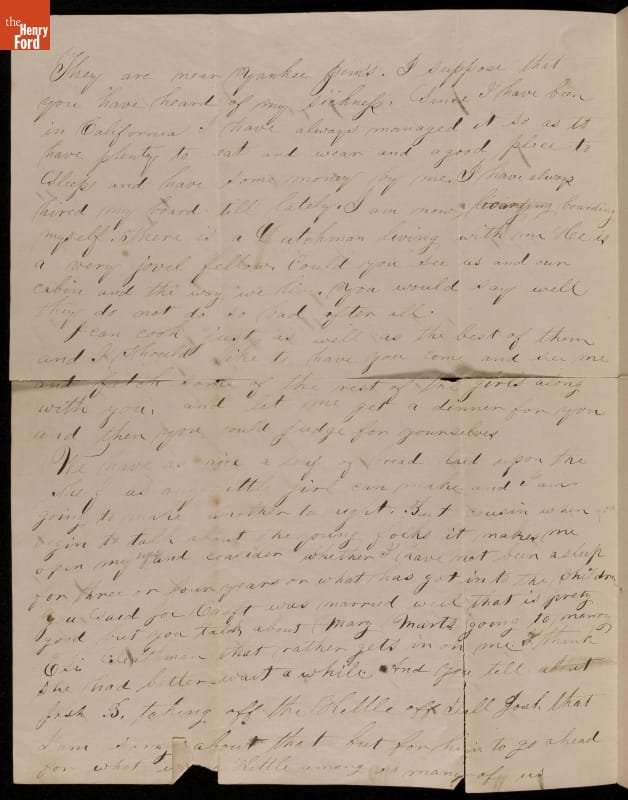 the
Henry
Ford
They are near Yankee Jims. I suppose that
you have heard of my sickness. Since I have been
in California I have always managed it so as to
have plenty to eat and wear and a good place to
Sleep and have some money by me. I have always
hired my board till lately. I am now boarding
myself. there is a Dutchman living with me He is
a very jovel fellow. Could you see us and our
cabin and the way we live. You would say well
they do not do so bad after all.
I can cook just as well as the best of them
and I should like to have you come and see me
and fetch some of the rest of the girls along
with you. and let me get a dinner for you
and then you could judge for yourselves
We have as nice a loaf of bread laid upon the
Shelf as any little girl can make and I am
going to make another to night. But cousin when you
begin to talk about the young folks it makes me
open my eyes and consider whether I have not been asleep
for three or four years or what has got in to the children
You said Joe Craft was married well that is prety
good but you talk about Mary Marts going to marry
that rather gets in on me I think
she had better wait a while. And you tell about
Josh B. taking off the Kettle off Tell Josh that
I am sorry about that but for him to go ahead
for what is a Kettle among so many of us